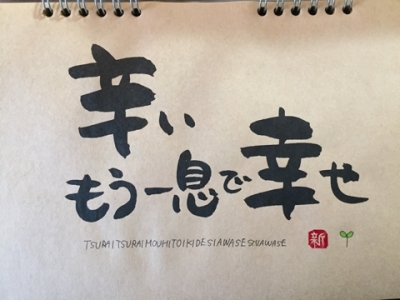 辛い
もう一息で幸せ
TSURAI TSURAI MOUHITOIKI DE SIAWASE SHIAWASE
新